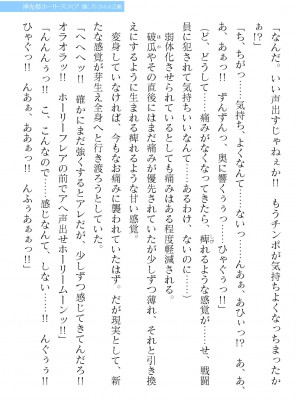 「なんだ、いい声出すじゃねぇか!! もうチンポが気持ちよくなっちまったか
ぁ!?」
「ち、ちがっ……気持ち、よくなんて……ないっ……んあぁ、あひぃっ!? あ、あ、
あ、あぁっ!! ずんずんっ、奥に響くぅぅっ……ひゃぐぅっ!!」
(ど、どうして……痛みがなくなってきたら、痺れるような感覚が……せ、戦闘
員に犯されて気持ちいいなんて……あるわけ、ないのに……)
弱体化させられているとしても痛みはある程度軽減される。
破瓜やその直後にはまだ痛みが優先されていたが少しずつ薄れ、それと引き換
えにするように生まれる痺れるような甘い感覚。
変身していなければ、今もなお痛みに襲われていたはず。だが現実として、新
たな感覚が芽生え全身へと行き渡ろうとしていた。
「へへへッ!! 確かにまだ強くするとアレだが、少しずつ感じてきてんだろ!!
オラオラッ!! ホーリーフレアの前でアヘ声出せホーリームーンッ!!」
「んんんぅっ!! こ、こんなので……感じなんて、しない……!! んぐぅぅ!
ひゃぐっ!! んあぁ あああっ!! んふぅああぁっ!!」